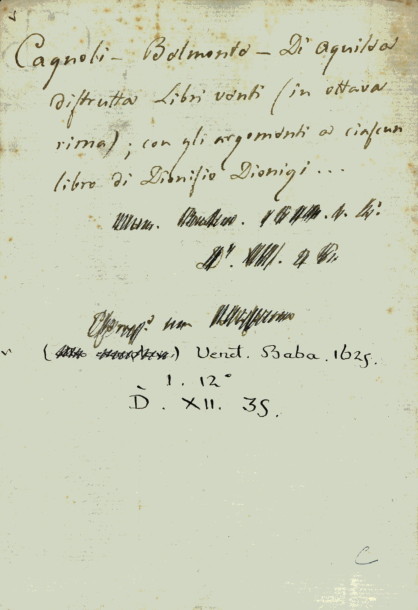 Cagnoli - Belmonte - Di Aquilea
distrutta Libri venti (in ottava
rima); con gli argomenti a ciascun
libro di Dionisio Dionigi ...
( ) Venet. Baba. 1625.
1. 12°
D. XII. 35.
C